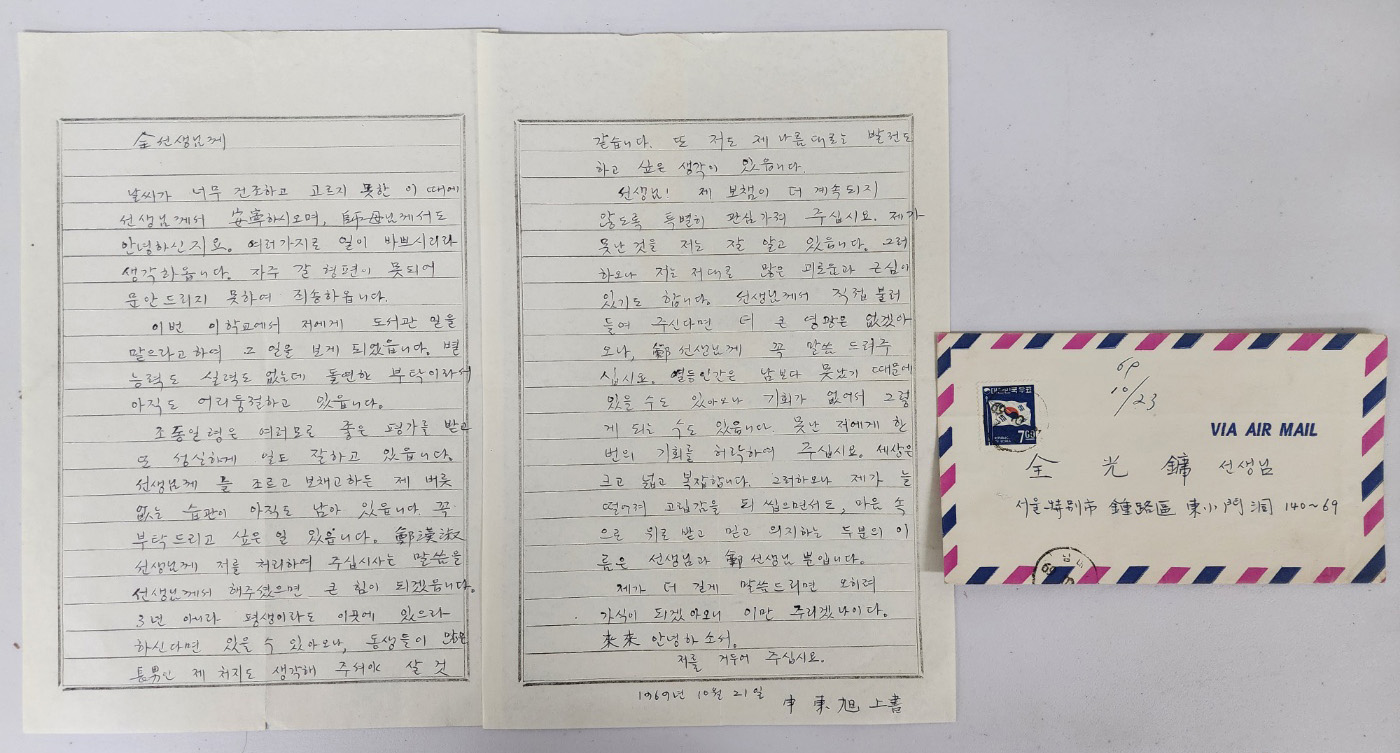 全 선생님께
날씨가 너무 건조하고 고르지 못한 이 때에
선생님께서 安寧하시오며, 師母님께서도
안녕하신지요. 여러가지로 일이 바쁘시리라
생각하옵니다. 자주 갈 형편이 못되어
문안드리지 못하여 죄송하옵니다.
이번 이학교에서 저에게 도서관 일을
맡으라고하여 그 일을 보게 되었읍니다. 별
능력도 실력도 없는데 돌연한 부탁이라서
아직도 어리둥절하고 있읍니다.
조동일형은 여러모로 좋은 평가를 받고
또 성실하게 일도 잘하고 있읍니다.
선생님께 를 조르고 보채고하든 제 버릇
없는 습관이 아직도 남아 있읍니다. 꼭
부탁드리고 싶은 일 있읍니다. 鄭漢淑
선생님께 저를 처리하여 주십시사는 말씀을
선생님께서 해주셨으면 큰 힘이 되겠읍니다.
3년 아니라 평생이라도 이곳에 있으라
하신다면 있을 수 있아오나, 동생들이 많은
長男인 제 처지도 생각해 주셔야 살 것
같습니다. 또 저도 제 나름대로는 발전도
하고 싶은 생각이 있읍니다.
선생님! 제 보챔이 더 계속되지
않도록 특별히 관심가져 주십시요. 제가
못난 것을 저는 잘 알고 있읍니다. 그러
하오나 저는 저대로 많은 괴로움과 근심이
있기도 합니다. 선생님께서 직접 불러
들여 주신다면 더 큰 영광은 없겠아
오나, 鄭선생님께 꼭 말씀 드려주
십시요. 열등인간은 남보다 못났기 때문에
있을 수도 있아오나 기회가 없어서 그렇
게 되는 수도 있읍니다. 못난 저에게 한
번의 기회를 허락하여 주십시요. 세상은
크고 넓고 복잡합니다. 그러하오나 제가 늘
떨어져 고립감을 되 씹으면서도, 마음 속
으로 위로 받고 믿고 의지하는 두분의 이
름은 선생님과 鄭선생님 뿐입니다.
제가 더 길게 말씀드리면 오히려
가식이 되겠아오니 이만 주리겠나이다.
來來 안녕하소서.
저를 거두어 주십시요.
1969년 10월 21일
申東旭 上書
69
10/23
대한민국우표
7.00
VIA AIR MAIL
全光鏞 선생님
서울特別市 鍾路區 東小門洞 140~69